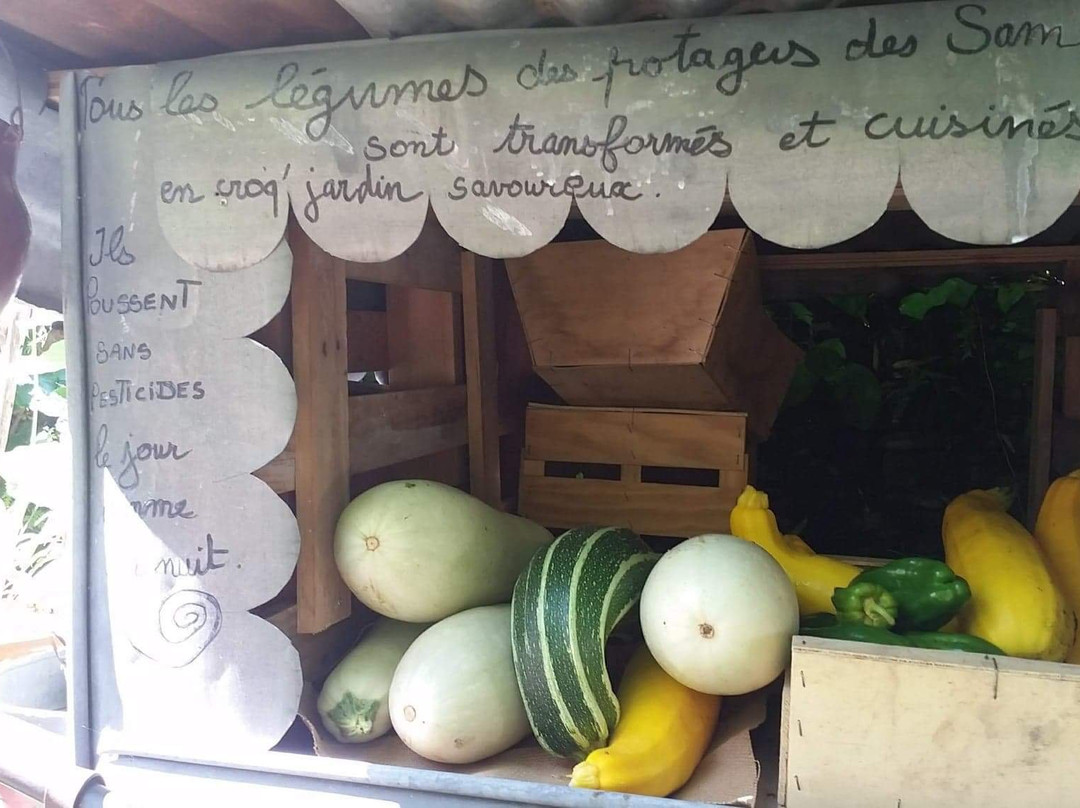 Tous les légumes des potagers des Sam
sont transformés et cuisinés
en croq' jardin savoureux.
Ils
POUSSENT
SANS
PESTICIDES
le jour
nuit.